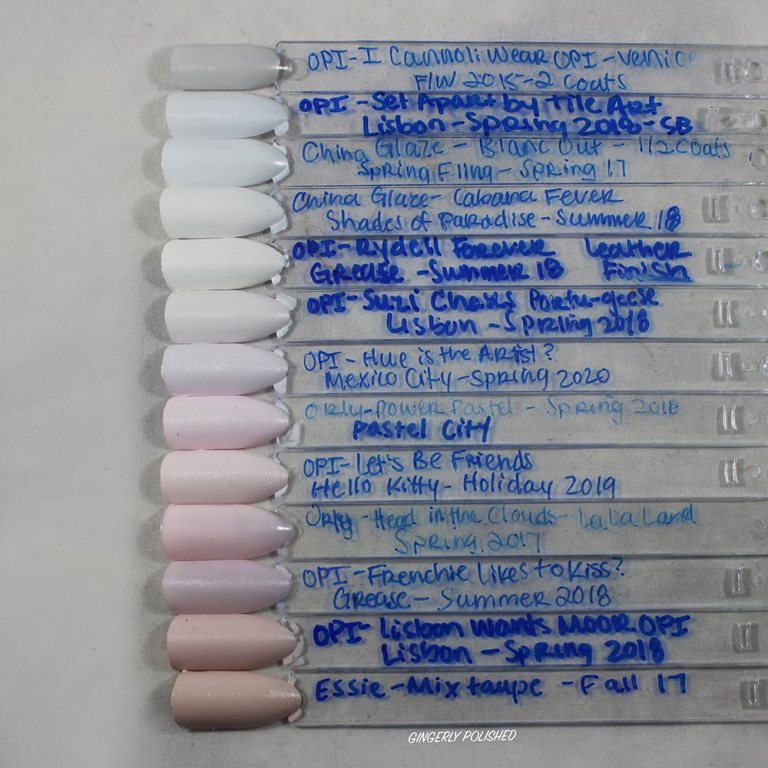 OPI-I Cannoli Wear OPI-Venice
F/W 2015-2 Coats
OPI-Set Apart by Tile Art
Lisbon-Spring 2018-SB
China Glaze-Blanc Out-1 1/2 Coats
Spring Fling-Spring 17
China Glaze-Cabana Fever
Shades of Paradise-Summer 18
OPI-Rydell Forever Leather
Grease-Summer 18 Finish
OPI-Suzi Chases Portu-geese
Lisbon-Spring 2018
OPI-Hue is the Artist?
Mexico City-Spring 2020
Orly-Power Pastel-Spring 2018
Pastel City
OPI-Let's Be Friends
Hello Kitty-Holiday 2019
Orly-Head in the Clouds-La La Land
Spring 2017
OPI-Frenchie Likes to Kiss?
Grease-Summer 2018
OPI-Lisbon Wants Moor OPI
Lisbon-Spring 2018
Essie-Mixtaupe-Fall 17
GINGERLY POLISHED